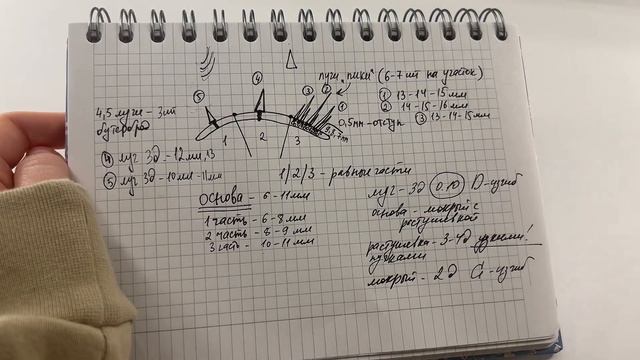 ④
⑤
③ ② ①
пучи "пики" (6-7 шт на участок)
① 13-14-15мм
② 14-15-16мм
③ 13-14-15мм
0,5мм-отступ
4,5 лучи - 3шт
бутеброд
1 2 3
④ луч 3д - 12мм,13
⑤ луч 3д - 10мм-11мм
1/2/3 - равные части
основа - 6-11мм
1 часть - 6-8мм
2 часть - 8-9мм
3 часть - 10-11мм
луч - 3д 0.10 D-изгиб
основа - мокрый с
растушевкой
растушевка - 3-4д узкими!
пучками
мокрый - 2д C-изгиб